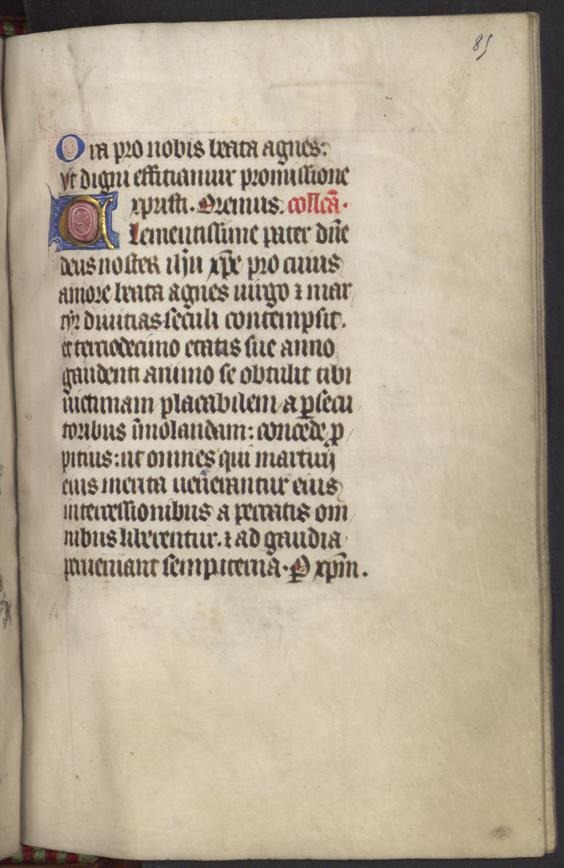 85
Ora pro nobis beata agnes:
Vt digni efficiamur promissione
xpristi. Oremus. collcā.
Clementissime pater dn̄e
deus noster ihū xp̄e pro cuius
amore beata agnes uirgo ⁊ mar
tyr diuitias seculi contempsit.
et terciodecimo etatis sue anno
gaudenti animo se obtulit tibi
uictimam placabilem a ꝑsecu
toribus īmolandam: concede ꝓ
pitius: ut omnes qui martirij
eius merita uen̄erantur eius
intercessionibus a peccatis om
nibus liberentur. ⁊ ad gaudia
perueniant sempiterna. P xp̄m.